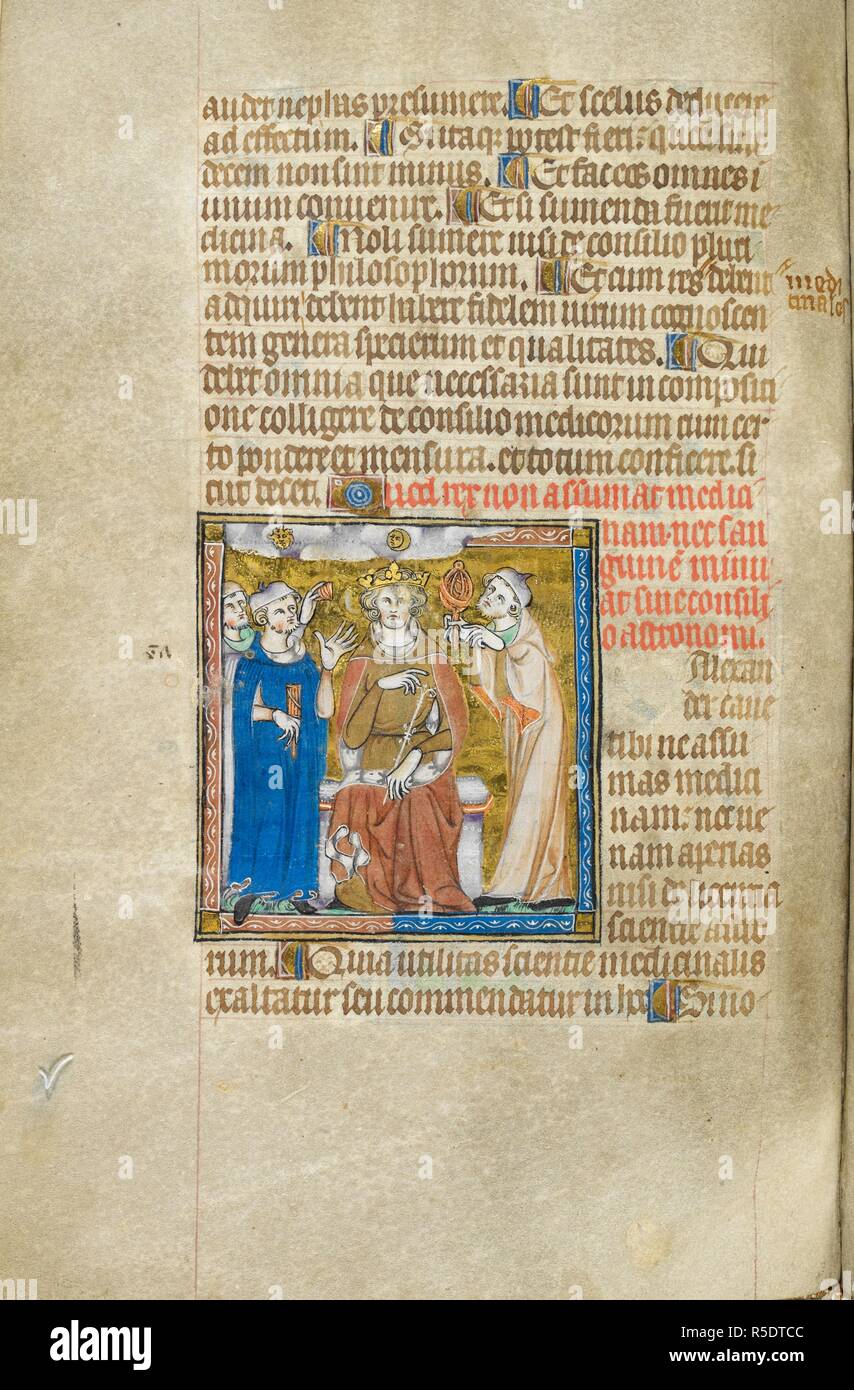 audet nephas presumere. Et scelus deducere
ad effectum. Si itaq; potest fieri: q
decem non sint minus. Et fac eos omnes i
unum conuenire. Et si sumenda fuerit me
dicina. Noli sumere nisi de consilio pluri
morum philosophorum. Et cum res debent
medi
cinales
adquiri debent habere fidelem uirum cognoscen
tem genera specierum et qualitates. Qui
debet omnia que necessaria sunt in compositi
one colligere de consilio medicorum cum cer
to pondere et mensura. et totum conficere. si
cut decet. Quod rex non assumat medici
nam. nec san
guinē minu
at sine consili
o astronomi.
Alexan
der caue
tibi ne assu
mas medici
nam: nec ue
nam aperias
nisi de licentia
scientie astro
rum. Quia utilitas scientie medicinalis
exaltatur seu commendatur in h Si no
alamy
alamy
Image ID: R5DTCC
www.alamy.com